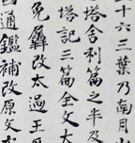 三十六三葉乃南月小
塔舍利篇之半及
塔記三篇全文大
免羼改太過王居
通鑑補改原文